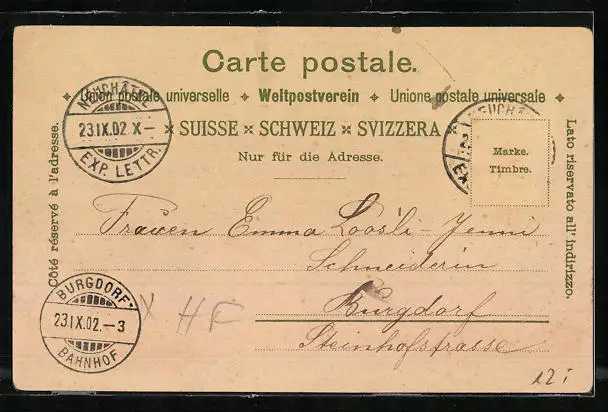 Carte postale.
Union postale universelle ✦ Weltpostverein ✦ Unione postale universale
SUISSE × SCHWEIZ × SVIZZERA
Nur für die Adresse.
NEUCHATEL
23.IX.02 X–
EXP. LETTR.
Marke.
Timbre.
Côté réservé à l'adresse.
Lato riservato all' indirizzo.
Frauen Emma Loosli-Jenni
Schneiderin
Burgdorf
Steinhofstrasse
BURGDORF
23.IX.02.–3
BAHNHOF
X HF